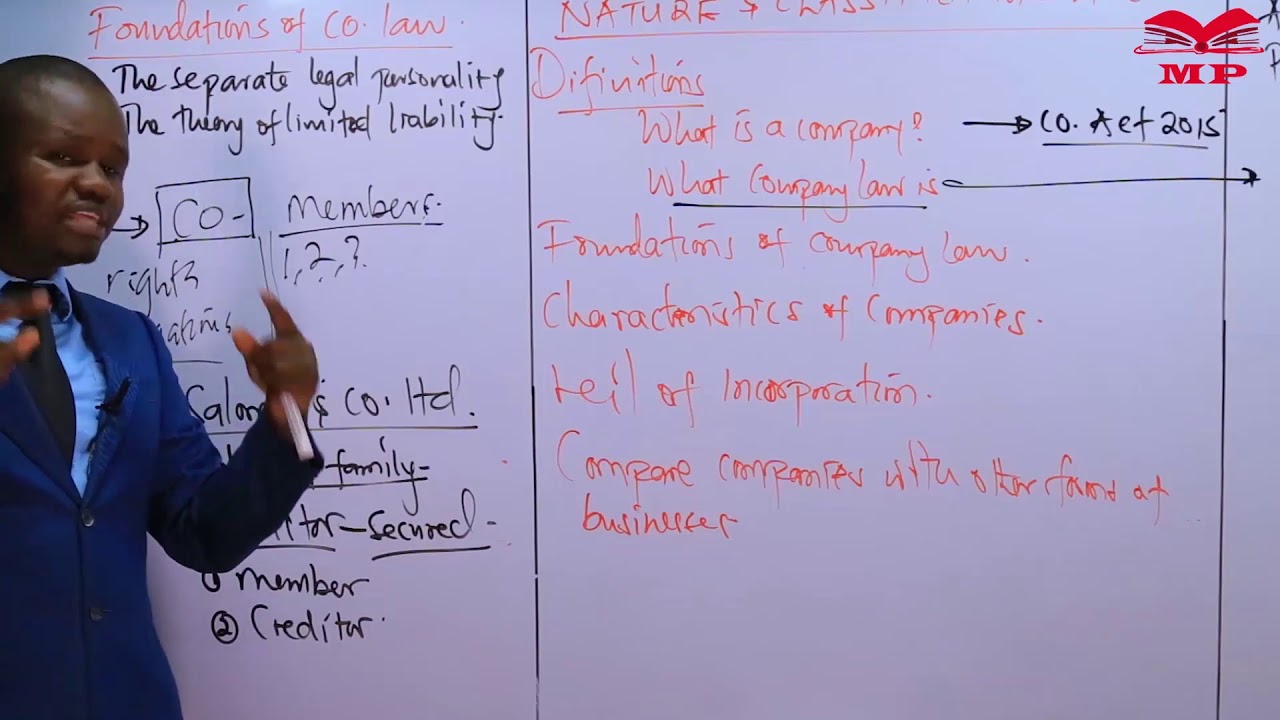 Foundations of Co. law.
The separate legal personality
The theory of limited liability.
CO-
Members.
1, 2, 3.
rights
& Co. ltd.
family
secured
① member
② Creditor.
NATURE &
Difinitions
What is a company? → CO. Act 2015
What Company law is
Foundations of company law.
Characteristics of Companies.
Veil of Incorporation.
Compare companies with other forms of
businesses
MP